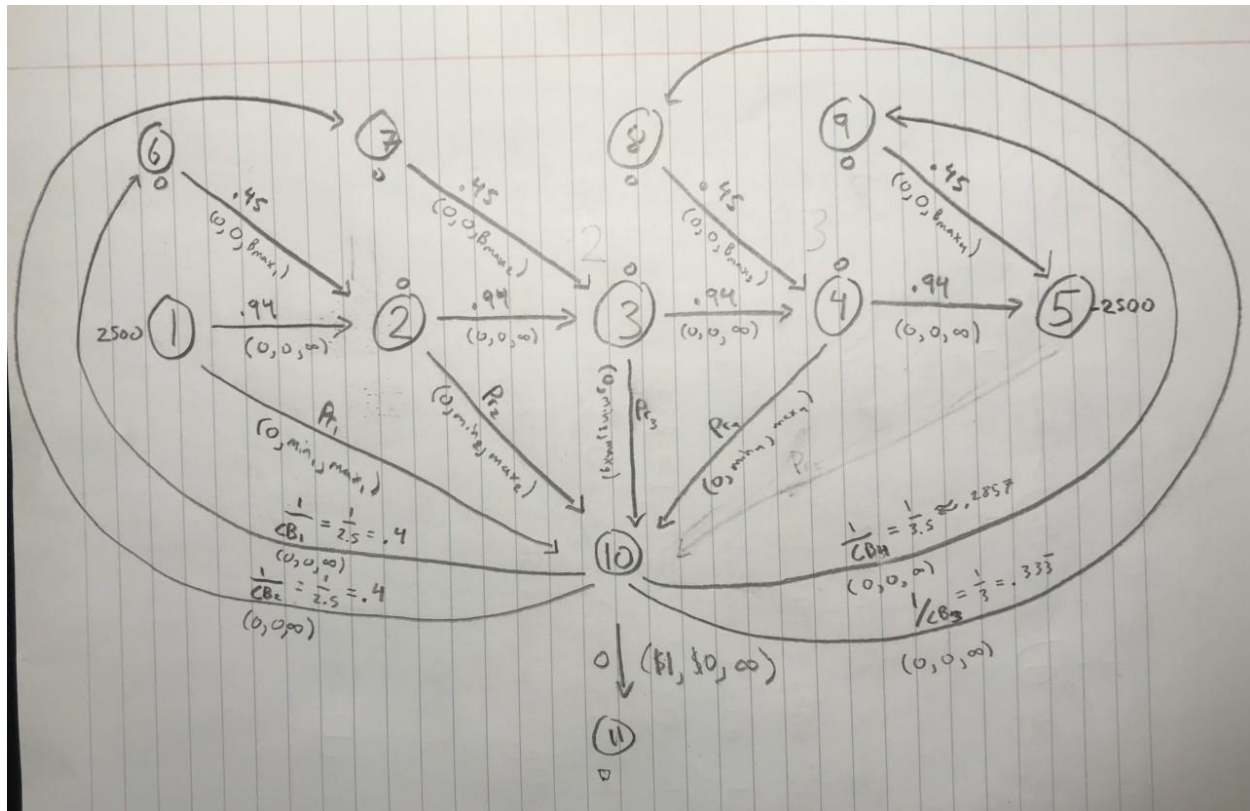 6
0
7
0
8
0
9
0
.45
(0,0,Bmax1)
.45
(0,0,Bmax2)
.45
(0,0,Bmax3)
.45
(0,0,Bmax4)
2
3
2500
1
.94
(0,0,∞)
0
2
.94
(0,0,∞)
0
3
.94
(0,0,∞)
0
4
.94
(0,0,∞)
5
-2500
Pr1
(0,min1,max1)
Pr2
(0,min2,max2)
Pr3
(0,min3,max3)
Pr4
(0,min4,max4)
10
1/CB1 = 1/2.5 = .4
(0,0,∞)
1/CB2 = 1/2.5 = .4
(0,0,∞)
1/CB4 = 1/3.5 ≈ .2857
(0,0,∞)
1/CB3 = 1/3 = .333̅
(0,0,∞)
0
($1, $0, ∞)
11
0